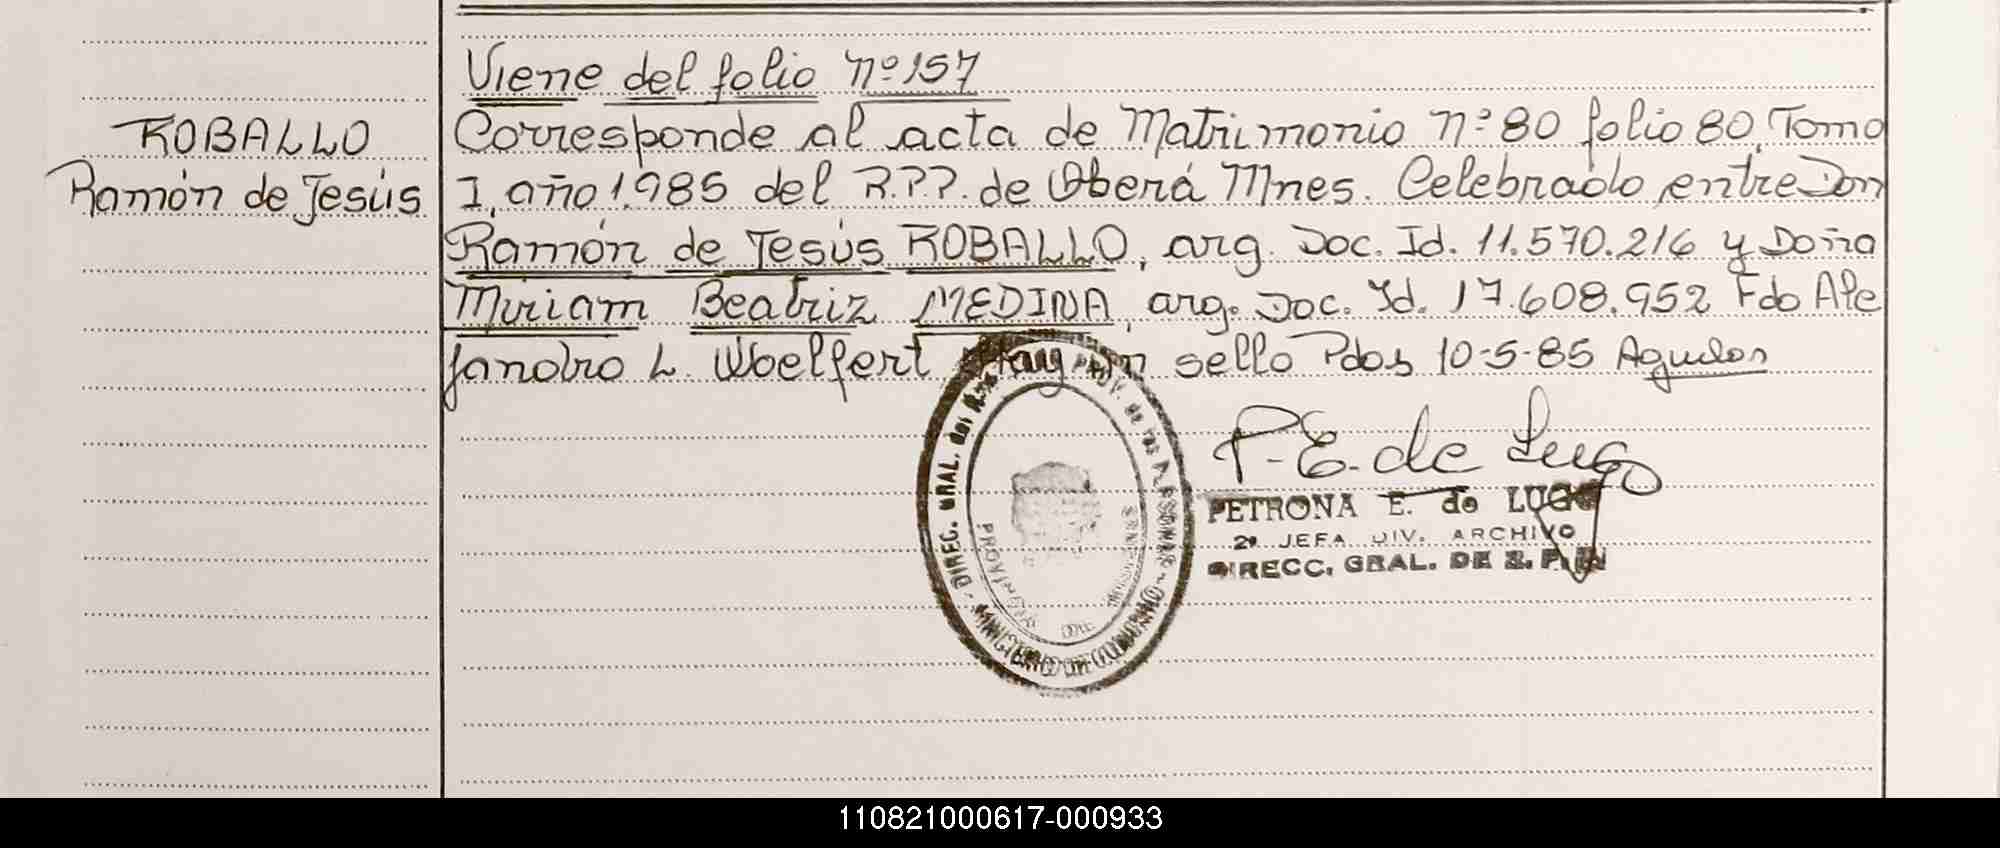 Viene del folio nº 157
ROBALLO
Ramón de Jesús
Corresponde al acta de Matrimonio nº 80 folio 80, Tomo
I, año 1.985 del R.P.P. de Oberá Mnes. Celebrado entre Don
Ramón de Jesús ROBALLO, arg. Doc. Id. 11.570.216 y Doña
Miriam Beatriz MEDINA, arg. Doc. Id. 17.608.952 Fdo Ale
jandro L. Woelfert Hay un sello Pdas 10-5-85
P. E. de Lugo
PETRONA E. de LUGO
2ª JEFA DIV. ARCHIVO
DIRECC. GRAL. DE R. P. P.
DIREC. GRAL. del PROV. de las PERSONAS
MINISTERIO DE GOBIERNO
PROVINCIA DE MISIONES
110821000617-000933